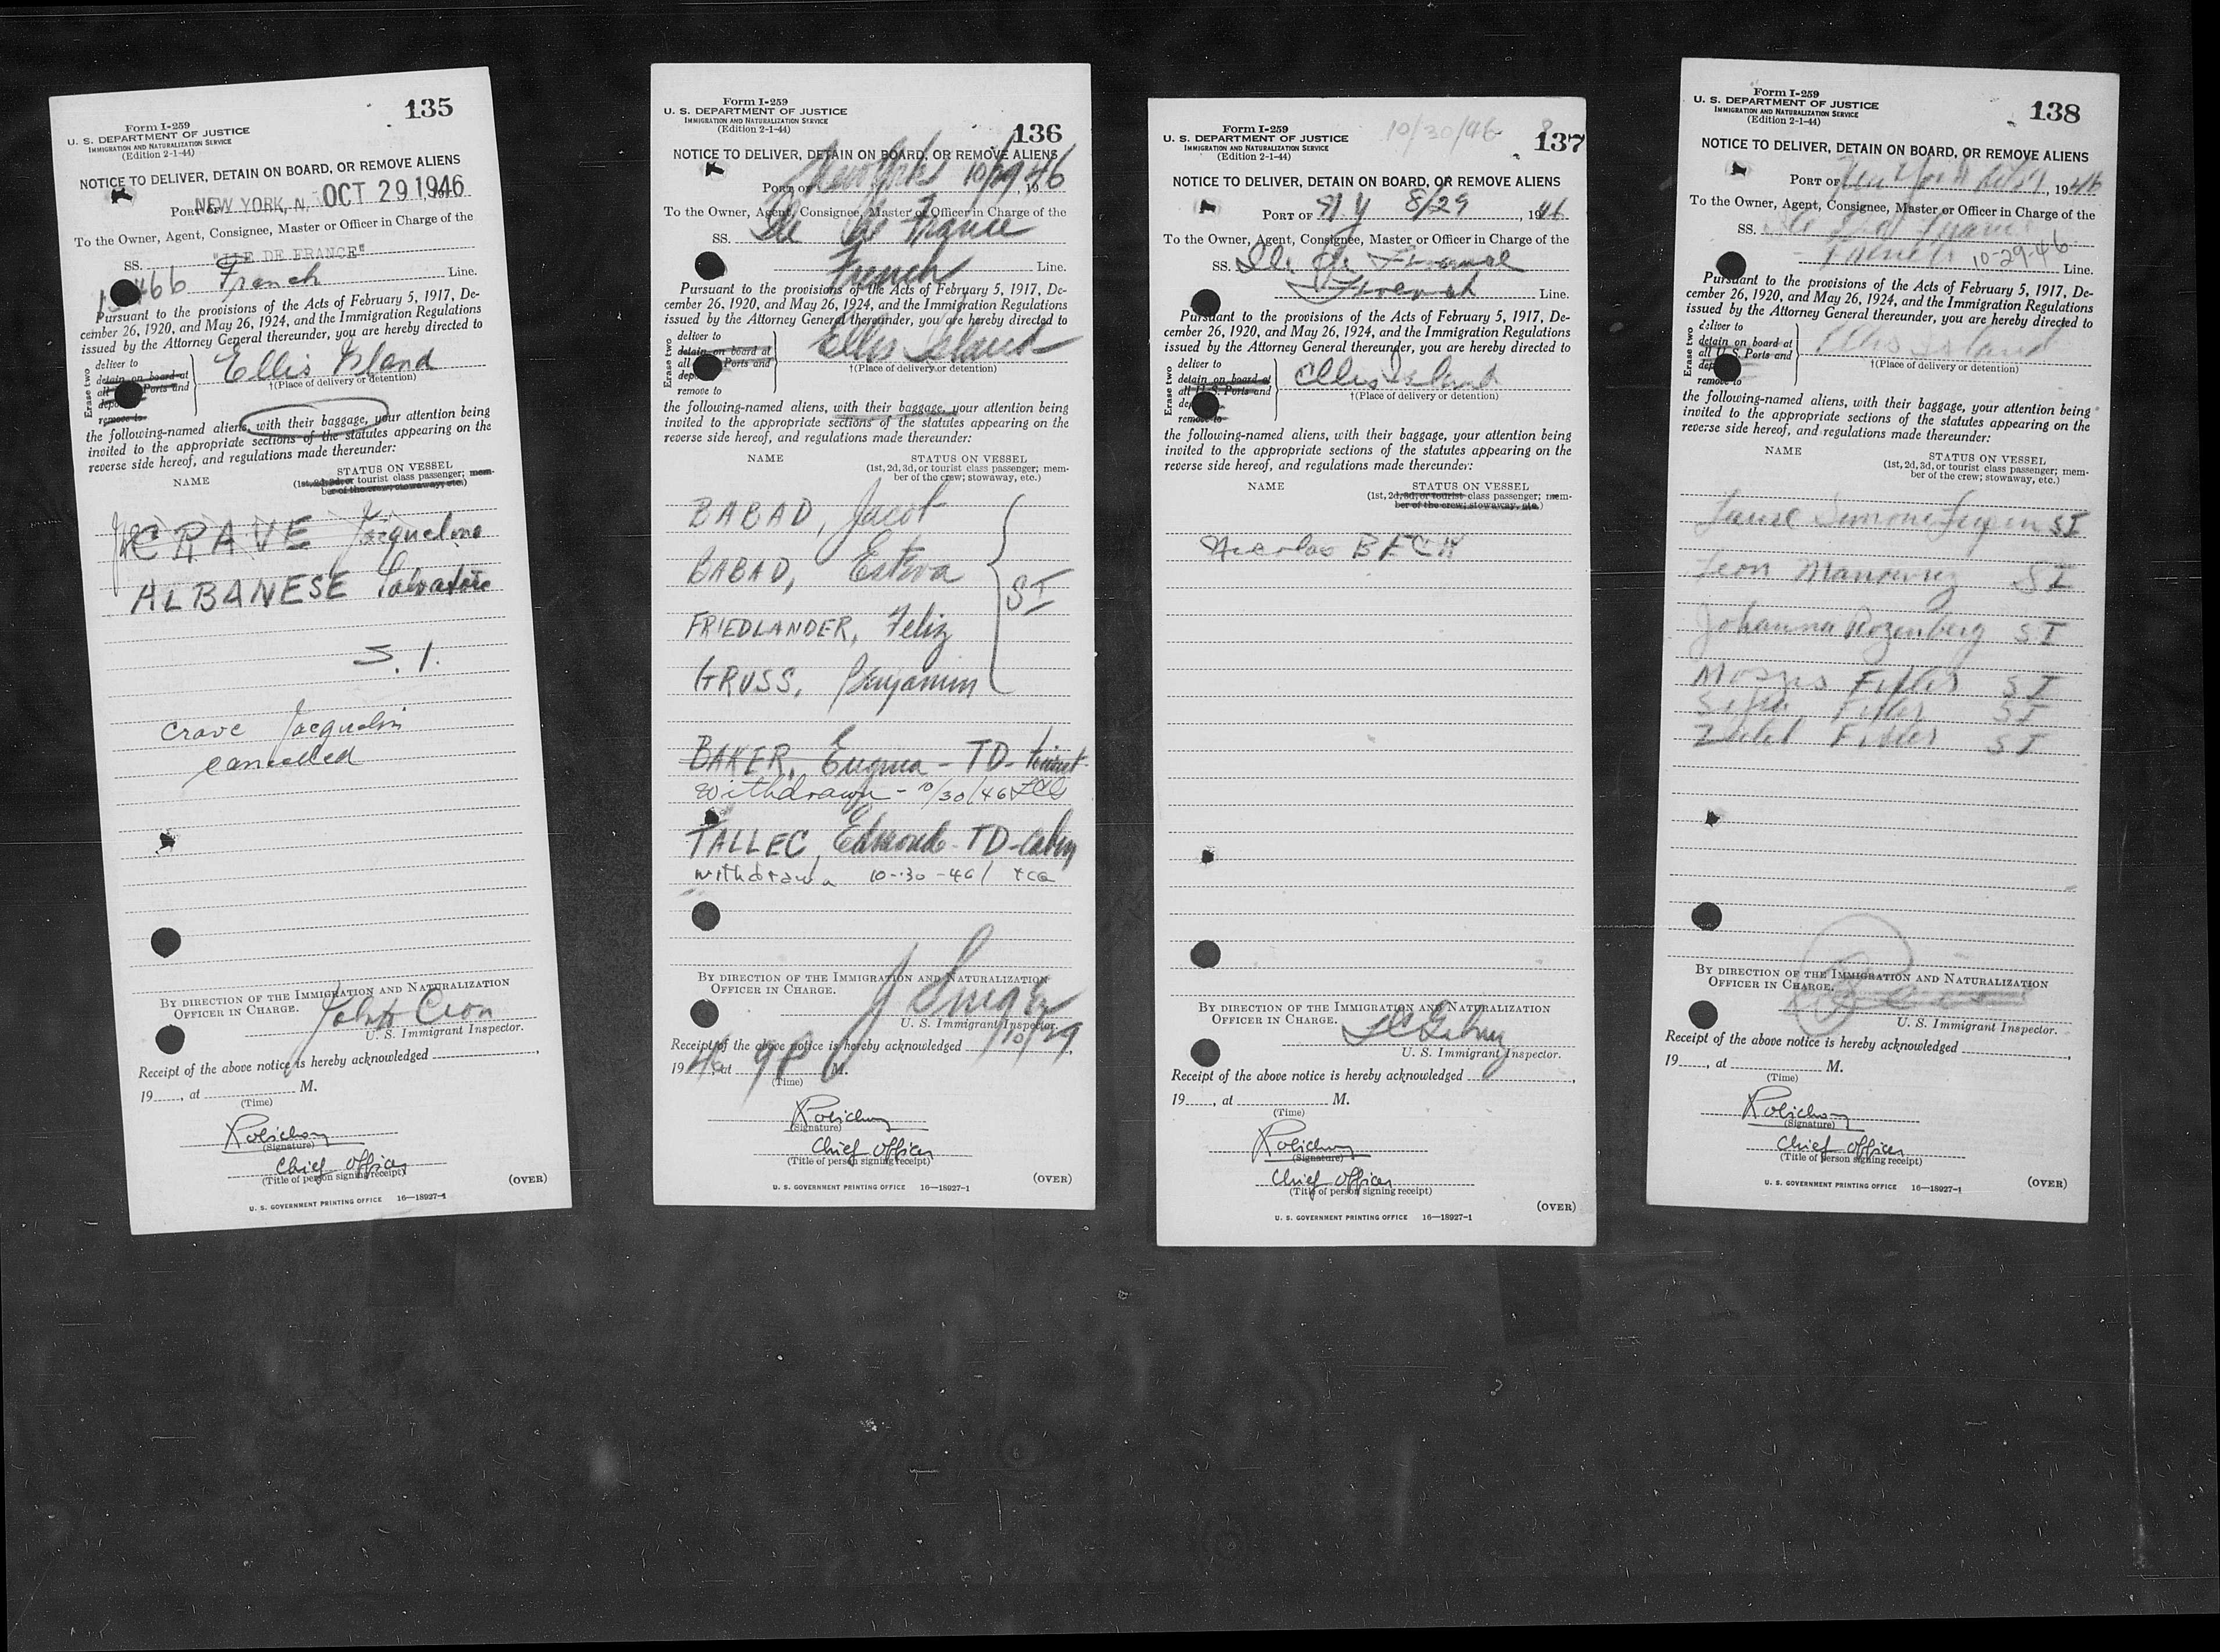 135
Form I-259
U. S. DEPARTMENT OF JUSTICE
IMMIGRATION AND NATURALIZATION SERVICE
(Edition 2-1-44)
NOTICE TO DELIVER, DETAIN ON BOARD, OR REMOVE ALIENS
PORT OF NEW YORK, N. OCT 29 1946
To the Owner, Agent, Consignee, Master or Officer in Charge of the
SS. "ILE DE FRANCE"
466 French Line.
Pursuant to the provisions of the Acts of February 5, 1917, De-
cember 26, 1920, and May 26, 1924, and the Immigration Regulations
issued by the Attorney General thereunder, you are hereby directed to
Erase two
deliver to
detain on board at
all Ports and
remove to
Ellis Island
†(Place of delivery or detention)
the following-named aliens, with their baggage, your attention being
invited to the appropriate sections of the statutes appearing on the
reverse side hereof, and regulations made thereunder:
NAME
STATUS ON VESSEL
(1st, 2d, 3d, or tourist class passenger; mem-
ber of the crew; stowaway, etc.)
CRAVE Jacqueline
ALBANESE Salvatore
S. I.
Crave Jacquelin
cancelled
BY DIRECTION OF THE IMMIGRATION AND NATURALIZATION
OFFICER IN CHARGE.
U. S. Immigrant Inspector.
Receipt of the above notice is hereby acknowledged
19 , at M.
(Time)
(Signature)
Chief Officer
(Title of person signing receipt)
(OVER)
U. S. GOVERNMENT PRINTING OFFICE 16—18927-1
136
Form I-259
U. S. DEPARTMENT OF JUSTICE
IMMIGRATION AND NATURALIZATION SERVICE
(Edition 2-1-44)
NOTICE TO DELIVER, DETAIN ON BOARD, OR REMOVE ALIENS
PORT OF New York 10/29, 1946
To the Owner, Agent, Consignee, Master or Officer in Charge of the
SS. Ile de France
French Line.
Pursuant to the provisions of the Acts of February 5, 1917, De-
cember 26, 1920, and May 26, 1924, and the Immigration Regulations
issued by the Attorney General thereunder, you are hereby directed to
Erase two
deliver to
detain on board at
all Ports and
remove to
Ellis Island
†(Place of delivery or detention)
the following-named aliens, with their baggage, your attention being
invited to the appropriate sections of the statutes appearing on the
reverse side hereof, and regulations made thereunder:
NAME
STATUS ON VESSEL
(1st, 2d, 3d, or tourist class passenger; mem-
ber of the crew; stowaway, etc.)
BABAD, Jacob
BABAD, Estera
SI
FRIEDLANDER, Feliz
GRUSS, Benjamin
BAKER, Eugenia - TD - tourist
withdrawn - 10/30/46
TALLEC, Edmonde - TD - cabin
withdrawn 10-30-46
BY DIRECTION OF THE IMMIGRATION AND NATURALIZATION
OFFICER IN CHARGE.
U. S. Immigrant Inspector.
Receipt of the above notice is hereby acknowledged 10/29,
1946, at 9 P M.
(Time)
(Signature)
Chief Officer
(Title of person signing receipt)
(OVER)
U. S. GOVERNMENT PRINTING OFFICE 16—18927-1
10/30/46
137
Form I-259
U. S. DEPARTMENT OF JUSTICE
IMMIGRATION AND NATURALIZATION SERVICE
(Edition 2-1-44)
NOTICE TO DELIVER, DETAIN ON BOARD, OR REMOVE ALIENS
PORT OF N Y 8/29, 1946
To the Owner, Agent, Consignee, Master or Officer in Charge of the
SS. Ile de France
French Line.
Pursuant to the provisions of the Acts of February 5, 1917, De-
cember 26, 1920, and May 26, 1924, and the Immigration Regulations
issued by the Attorney General thereunder, you are hereby directed to
Erase two
deliver to
detain on board at
all U. S. Ports and
remove to
Ellis Island
†(Place of delivery or detention)
the following-named aliens, with their baggage, your attention being
invited to the appropriate sections of the statutes appearing on the
reverse side hereof, and regulations made thereunder:
NAME
STATUS ON VESSEL
(1st, 2d, 3d, or tourist class passenger; mem-
ber of the crew; stowaway, etc.)
Nicolas BECK
BY DIRECTION OF THE IMMIGRATION AND NATURALIZATION
OFFICER IN CHARGE.
U. S. Immigrant Inspector.
Receipt of the above notice is hereby acknowledged
19 , at M.
(Time)
(Signature)
Chief Officer
(Title of person signing receipt)
(OVER)
U. S. GOVERNMENT PRINTING OFFICE 16—18927-1
138
Form I-259
U. S. DEPARTMENT OF JUSTICE
IMMIGRATION AND NATURALIZATION SERVICE
(Edition 2-1-44)
NOTICE TO DELIVER, DETAIN ON BOARD, OR REMOVE ALIENS
PORT OF New York 1946
To the Owner, Agent, Consignee, Master or Officer in Charge of the
SS. Ile de France
French 10-29-46 Line.
Pursuant to the provisions of the Acts of February 5, 1917, De-
cember 26, 1920, and May 26, 1924, and the Immigration Regulations
issued by the Attorney General thereunder, you are hereby directed to
Erase two
deliver to
detain on board at
all U. S. Ports and
remove to
Ellis Island
†(Place of delivery or detention)
the following-named aliens, with their baggage, your attention being
invited to the appropriate sections of the statutes appearing on the
reverse side hereof, and regulations made thereunder:
NAME
STATUS ON VESSEL
(1st, 2d, 3d, or tourist class passenger; mem-
ber of the crew; stowaway, etc.)
Simone SI
Leon SI
Johanna Rozenberg SI
Mozes SI
SI
SI
BY DIRECTION OF THE IMMIGRATION AND NATURALIZATION
OFFICER IN CHARGE.
U. S. Immigrant Inspector.
Receipt of the above notice is hereby acknowledged
19 , at M.
(Time)
(Signature)
Chief Officer
(Title of person signing receipt)
(OVER)
U. S. GOVERNMENT PRINTING OFFICE 16—18927-1